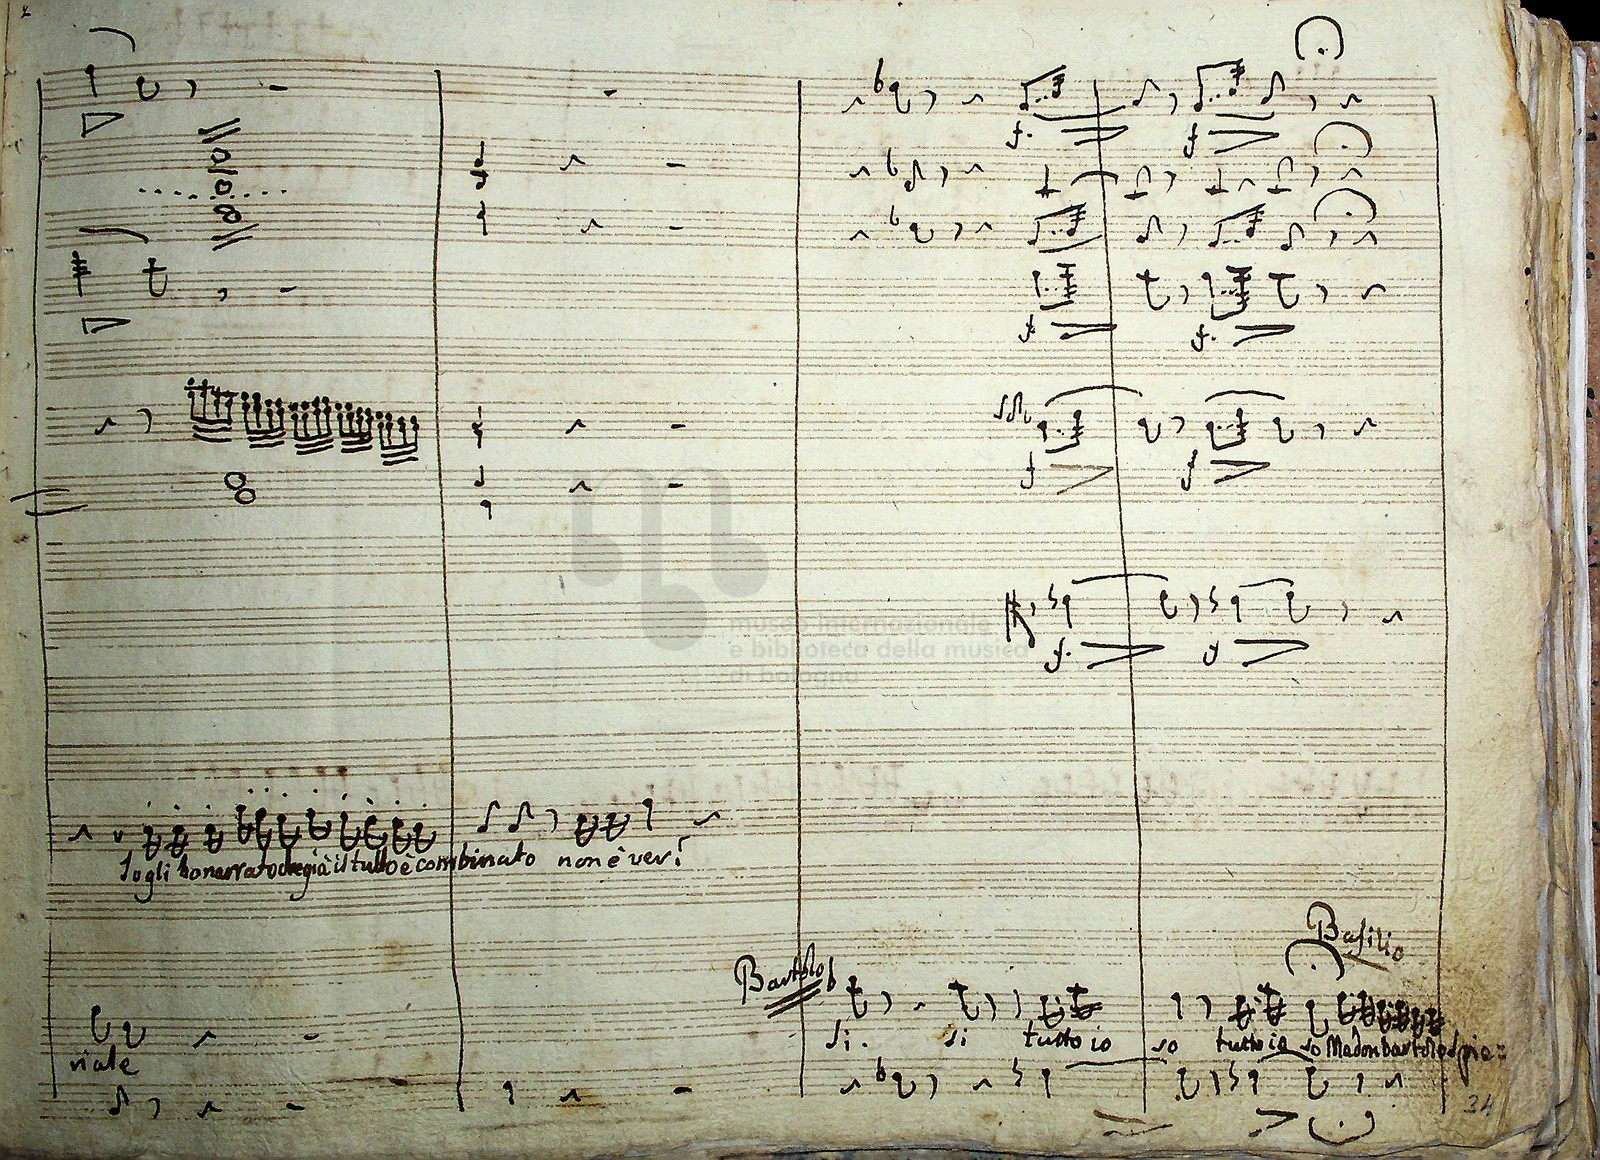 2
museo internazionale
e biblioteca della musica
di bologna
Io gli ho narrato che già il tutto è combinato non è ver?
Basilio
Bartolo
si. si tutto io so tutto io so Ma don bartolo spie=
viale
f. f
f. f.
f f
f. f
34